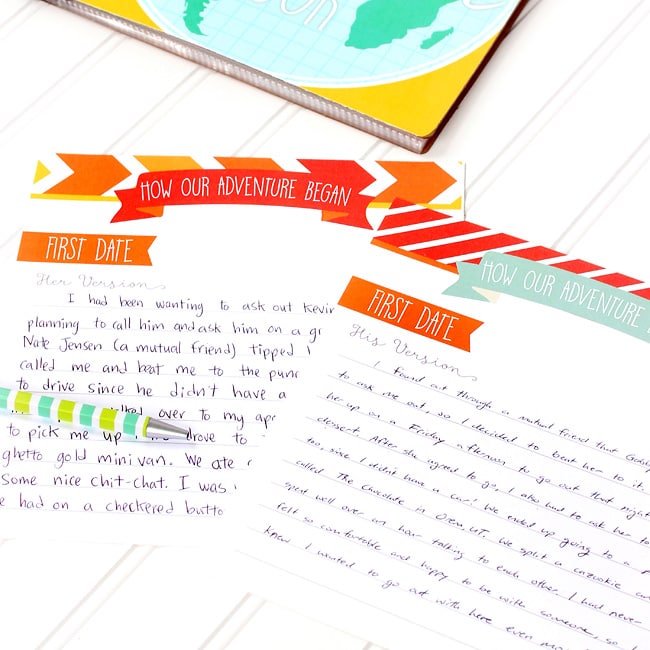 HOW OUR ADVENTURE BEGAN
FIRST DATE
Her Version
I had been wanting to ask out Kevin
planning to call him and ask him on a
Nate Jensen (a mutual friend) tipped
called me and beat me to the
to drive since he didn't have a
over to my
to pick me up drove to
ghetto gold minivan. We ate
some nice chit-chat. I was
had on a checkered
HOW OUR ADVENTURE
FIRST DATE
His Version
I found out through a mutual friend that
to ask me out, so I decided to beat her to it.
her up on a Friday afternoon to go out that night
dessert. After she agreed to go, I also had to ask her to
too, since I didn't have a car! We ended up going to a
called The Chocolate in Orem, UT. We split a cazookie
spent well over an hour talking to each other. I had never
felt so comfortable and happy to be with someone, so I
knew I wanted to go out with here even